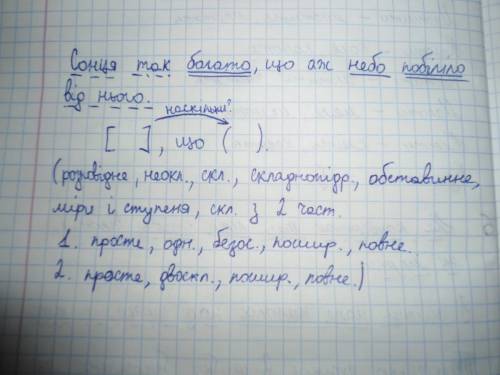 Сонця так багато, що аж небо побіліло
від нього.
наскільки?
[ ], що ( ).
(розповідне, неокл., скл., складнопідр., обставинне,
міри і ступеня, скл. з 2 част.
1. просте, одн., безос., пошир., повне.
2. просте, двоскл., пошир., повне.)